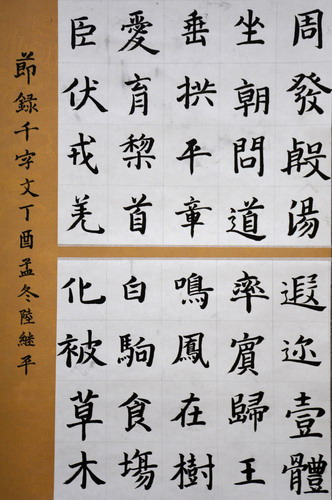 周發殷湯
坐朝問道
垂拱平章
愛育黎首
臣伏戎羌
遐迩壹體
率賓歸王
鳴鳳在樹
白駒食塲
化被草木
莭録千字文丁酉孟冬陸継平